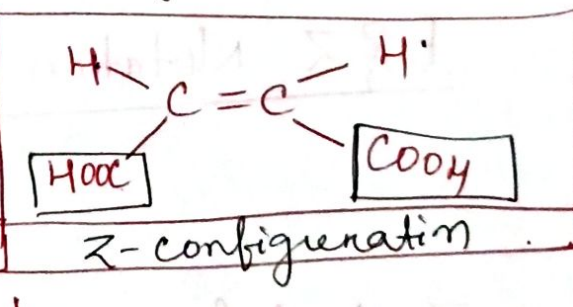 H H
C = C
HOOC COOH
Z-configuratin .